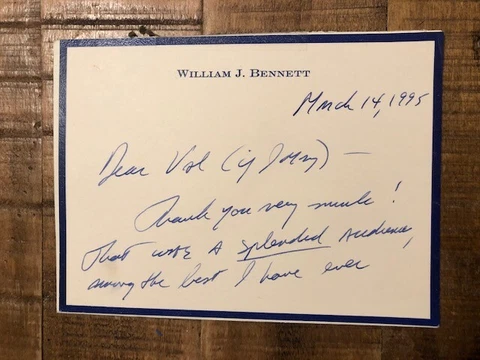 WILLIAM J. BENNETT
March 14, 1995
Dear Val (if I may) —
Thank you very much!
That was a splendid audience,
among the best I have ever